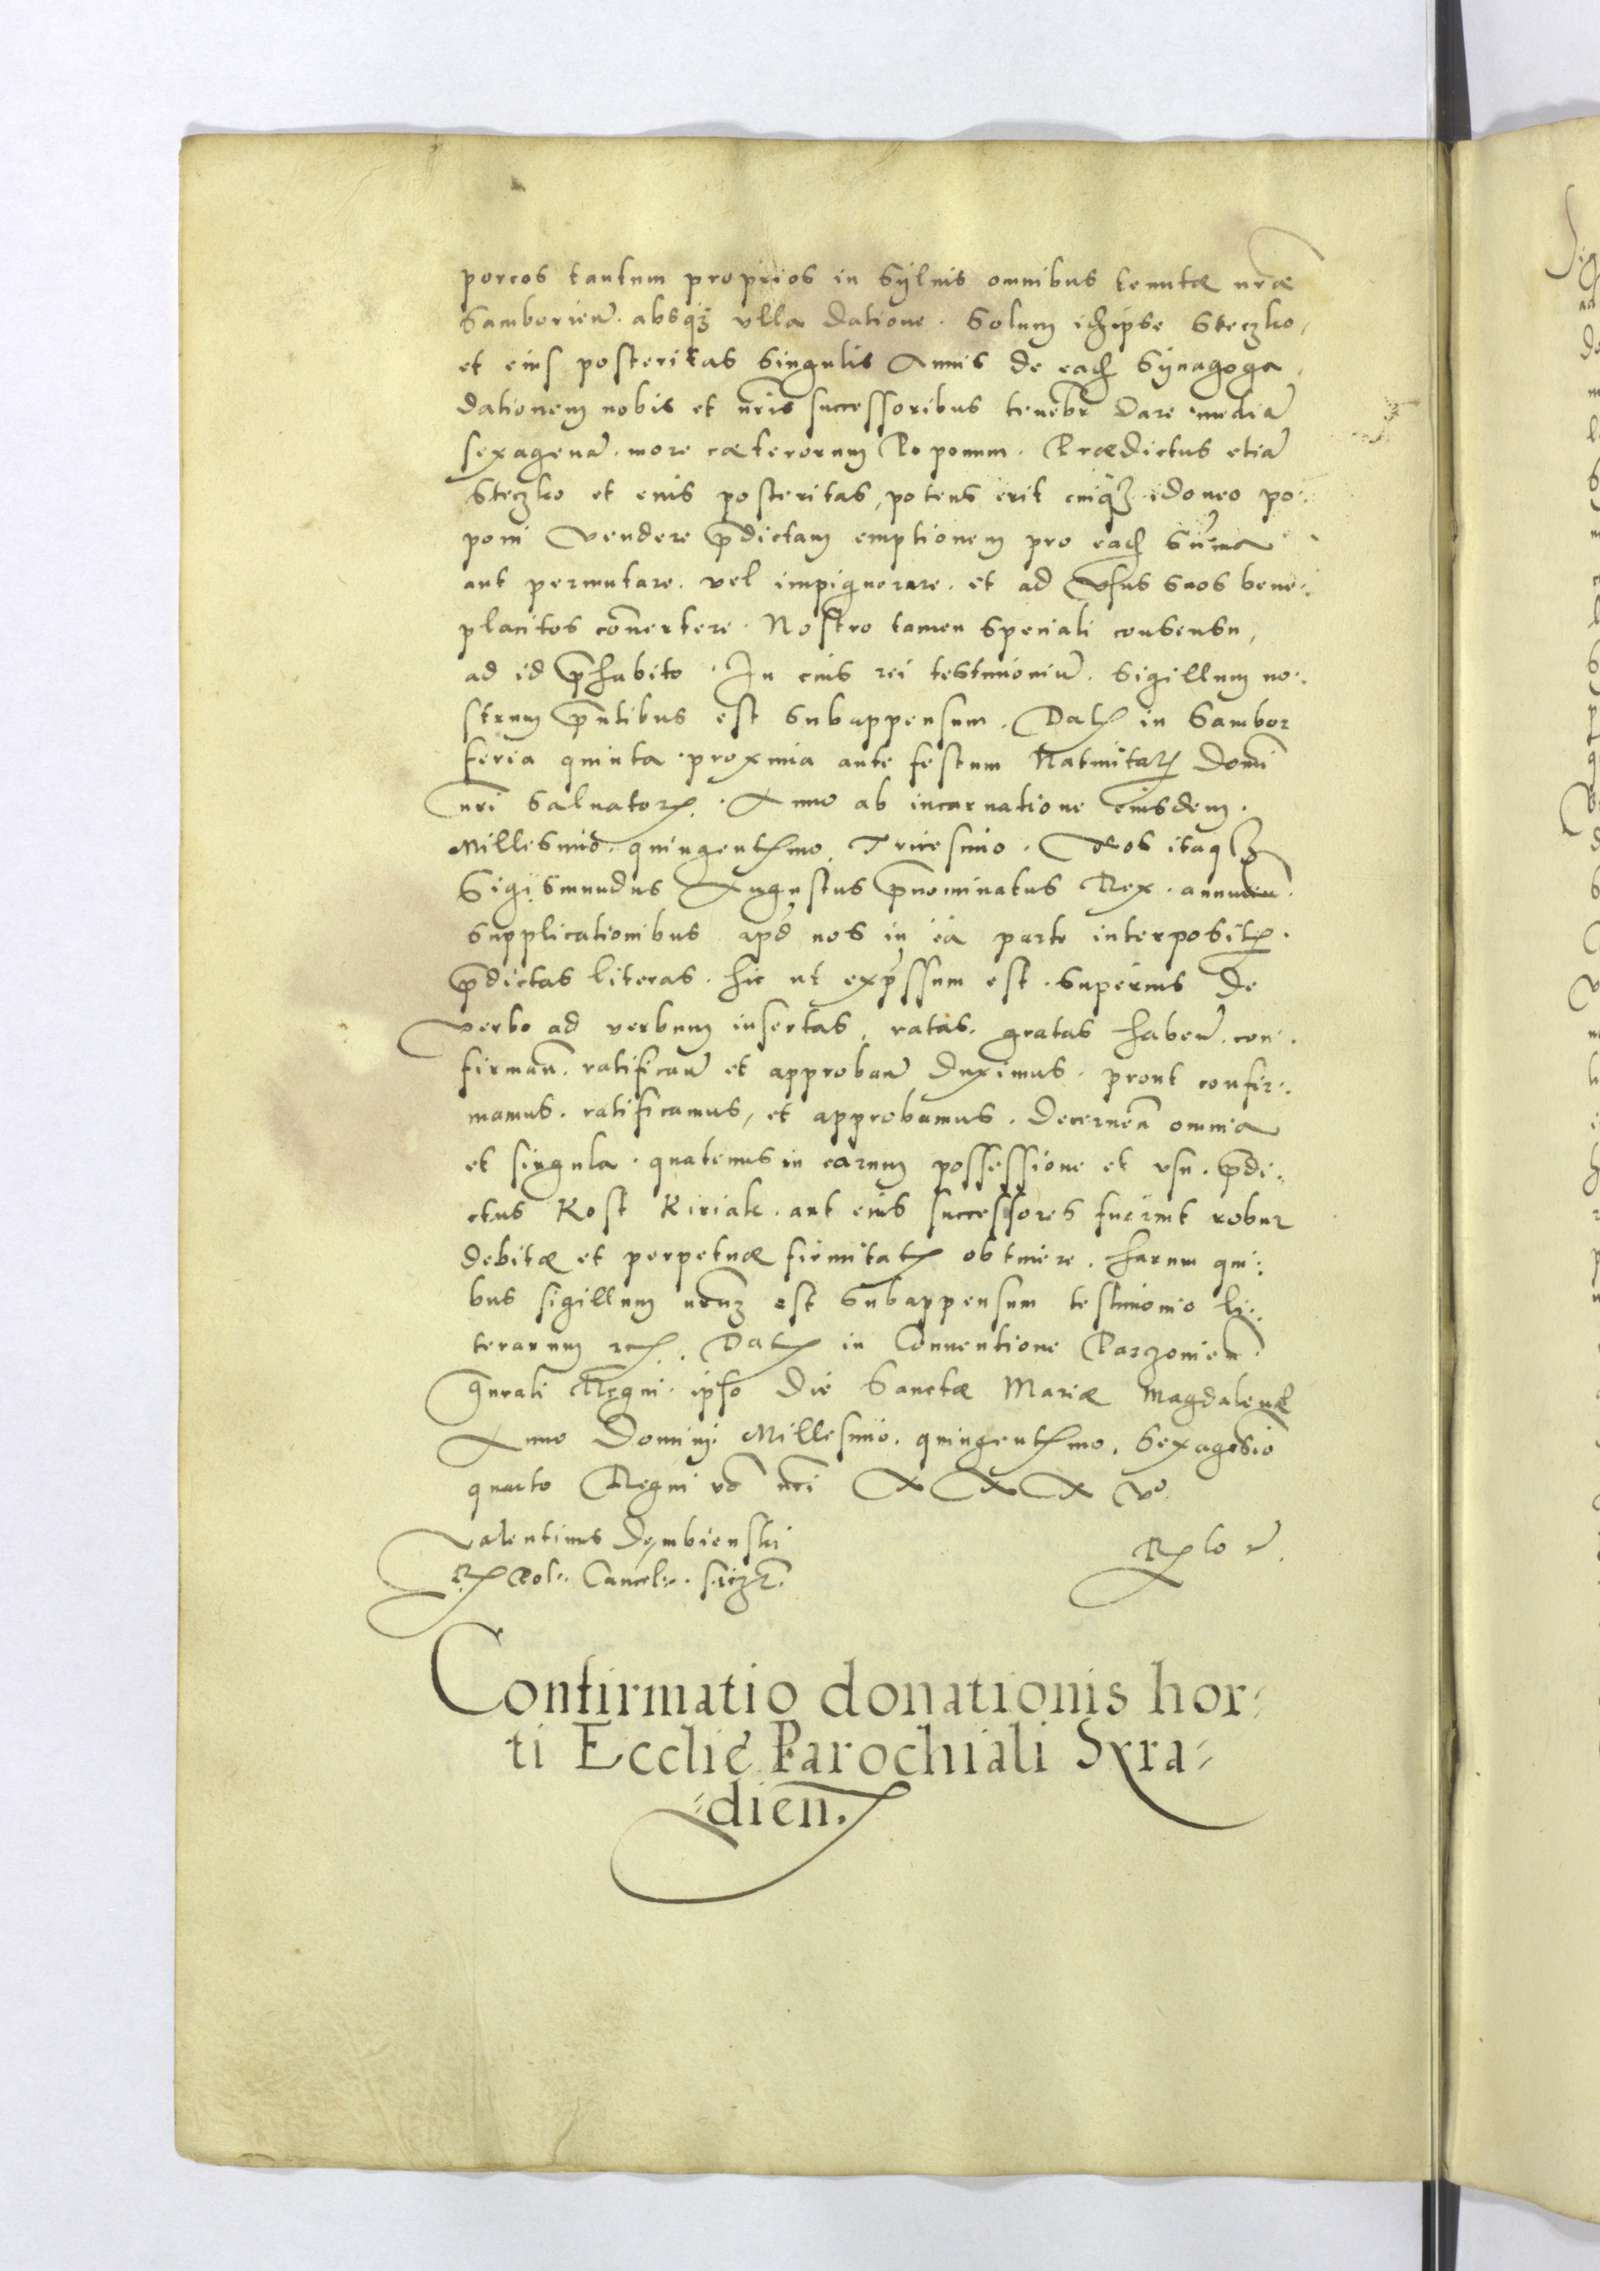 porcos tantum proprios in Syluis omnibus tenutæ nr̃æ
Samborien̄. absq₃ vlla datione. Solum id ipse Steczko,
et eius posteritas Singulis Annis de ead Synagoga,
dationem nobis et nr̃is successoribus tenebr̃ dare mediā
sexagenā. more cæterorum Poponum. Prædictus etiā
Steczko et eius posteritas, potens erit cuiq₃ idoneo po⸗
poni vendere p̄dictam emptionem pro ead sūma
aut permutare. vel impignorare. et ad vsus suos bene⸗
placitos cōuertere. Nostro tamen speciali consensu,
ad id p̄habito. In cuius rei testimoniū. Sigillum no⸗
strum p̄ntibus est subappensum. Dat in Sambor
feria quinta proxima ante festum Natiuitat Domī
nr̃i Saluator. Anno ab incarnatione eiusdem.
Millesimo. quingentmo, Tricesimo. Nos itaq₃
Sigismundus Augustus p̄nominatus Rex. annuen̄.
supplicationibus apd̄ nos in ea parte interposit.
p̄dictas literas. hic ut exp̄ssum est. superius de
verbo ad verbum insertas, ratas. gratas haben̄. con⸗
firman̄. ratifican̄ et approban̄ duximus. prout confir⸗
mamus. ratificamus, et approbamus. Decernen̄ omnia
et singula. quatenus in earum possessione et vsu. p̄di⸗
ctus Kost Kiriak. aut eius successores fuerint robur
debitæ et perpetuæ firmitat obtinere. harum qui⸗
bus sigillum nr̃um est subappensum testimonio li⸗
terarum. Dat in Conuentione Parczouien̄
gn̄rali Regni. ipso die Sanctæ Mariæ Magdalenæ
Anno Domini Millesimo. quingentmo, Sexagesio
quarto Regni vō nr̃i XXX vº
Valentinus Dembienski
R Pol. Cancel.
Confirmatio donationis hor⸗
ti Ecclie Parochiali Syra⸗
⸗dien̄.